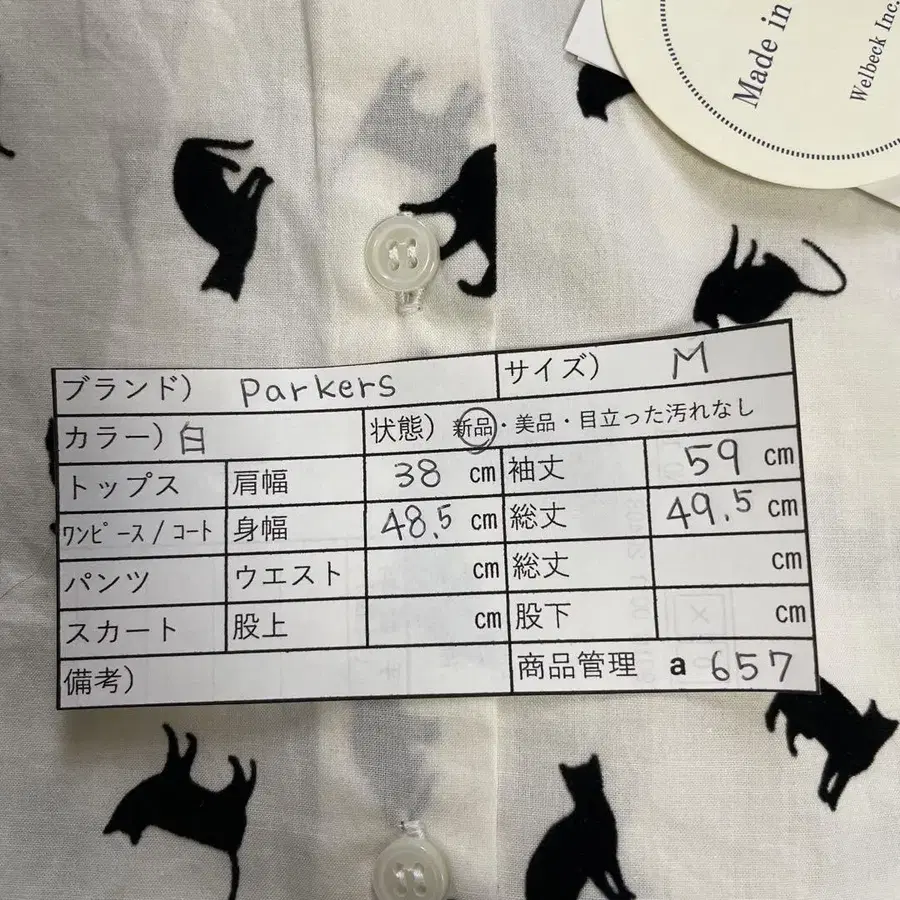 Made in
Welbeck Inc.
ブランド) Parkers サイズ) M
カラー) 白 状態) 新品・美品・目立った汚れなし
トップス 肩幅 38 cm 袖丈 59 cm
ﾜﾝﾋﾟｰｽ / ｺｰﾄ 身幅 48.5 cm 総丈 49.5 cm
パンツ ウエスト cm 総丈 cm
スカート 股上 cm 股下 cm
備考) 商品管理 a 657